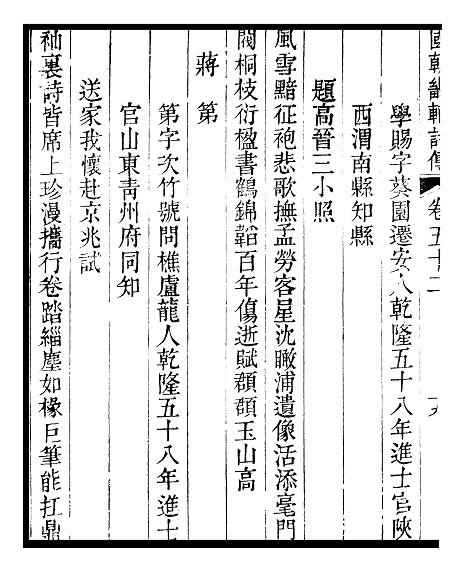 國朝畿輔詩傳 卷五十二
學賜字葵園遷安人乾隆五十八年進士官陝
西渭南縣知縣
題高晉三小照
風雪黯征袍悲歌撫孟勞客星沈瞰浦遺像活添毫門
閥桐枝衍楹書鶴錦韜百年傷逝賦頹頷玉山高
蔣第
第字次竹號問樵盧龍人乾隆五十八年進士
官山東青州府同知
送家我懷赴京兆試
袖裏詩皆席上珍漫攜行卷踏緇塵如椽巨筆能扛鼎